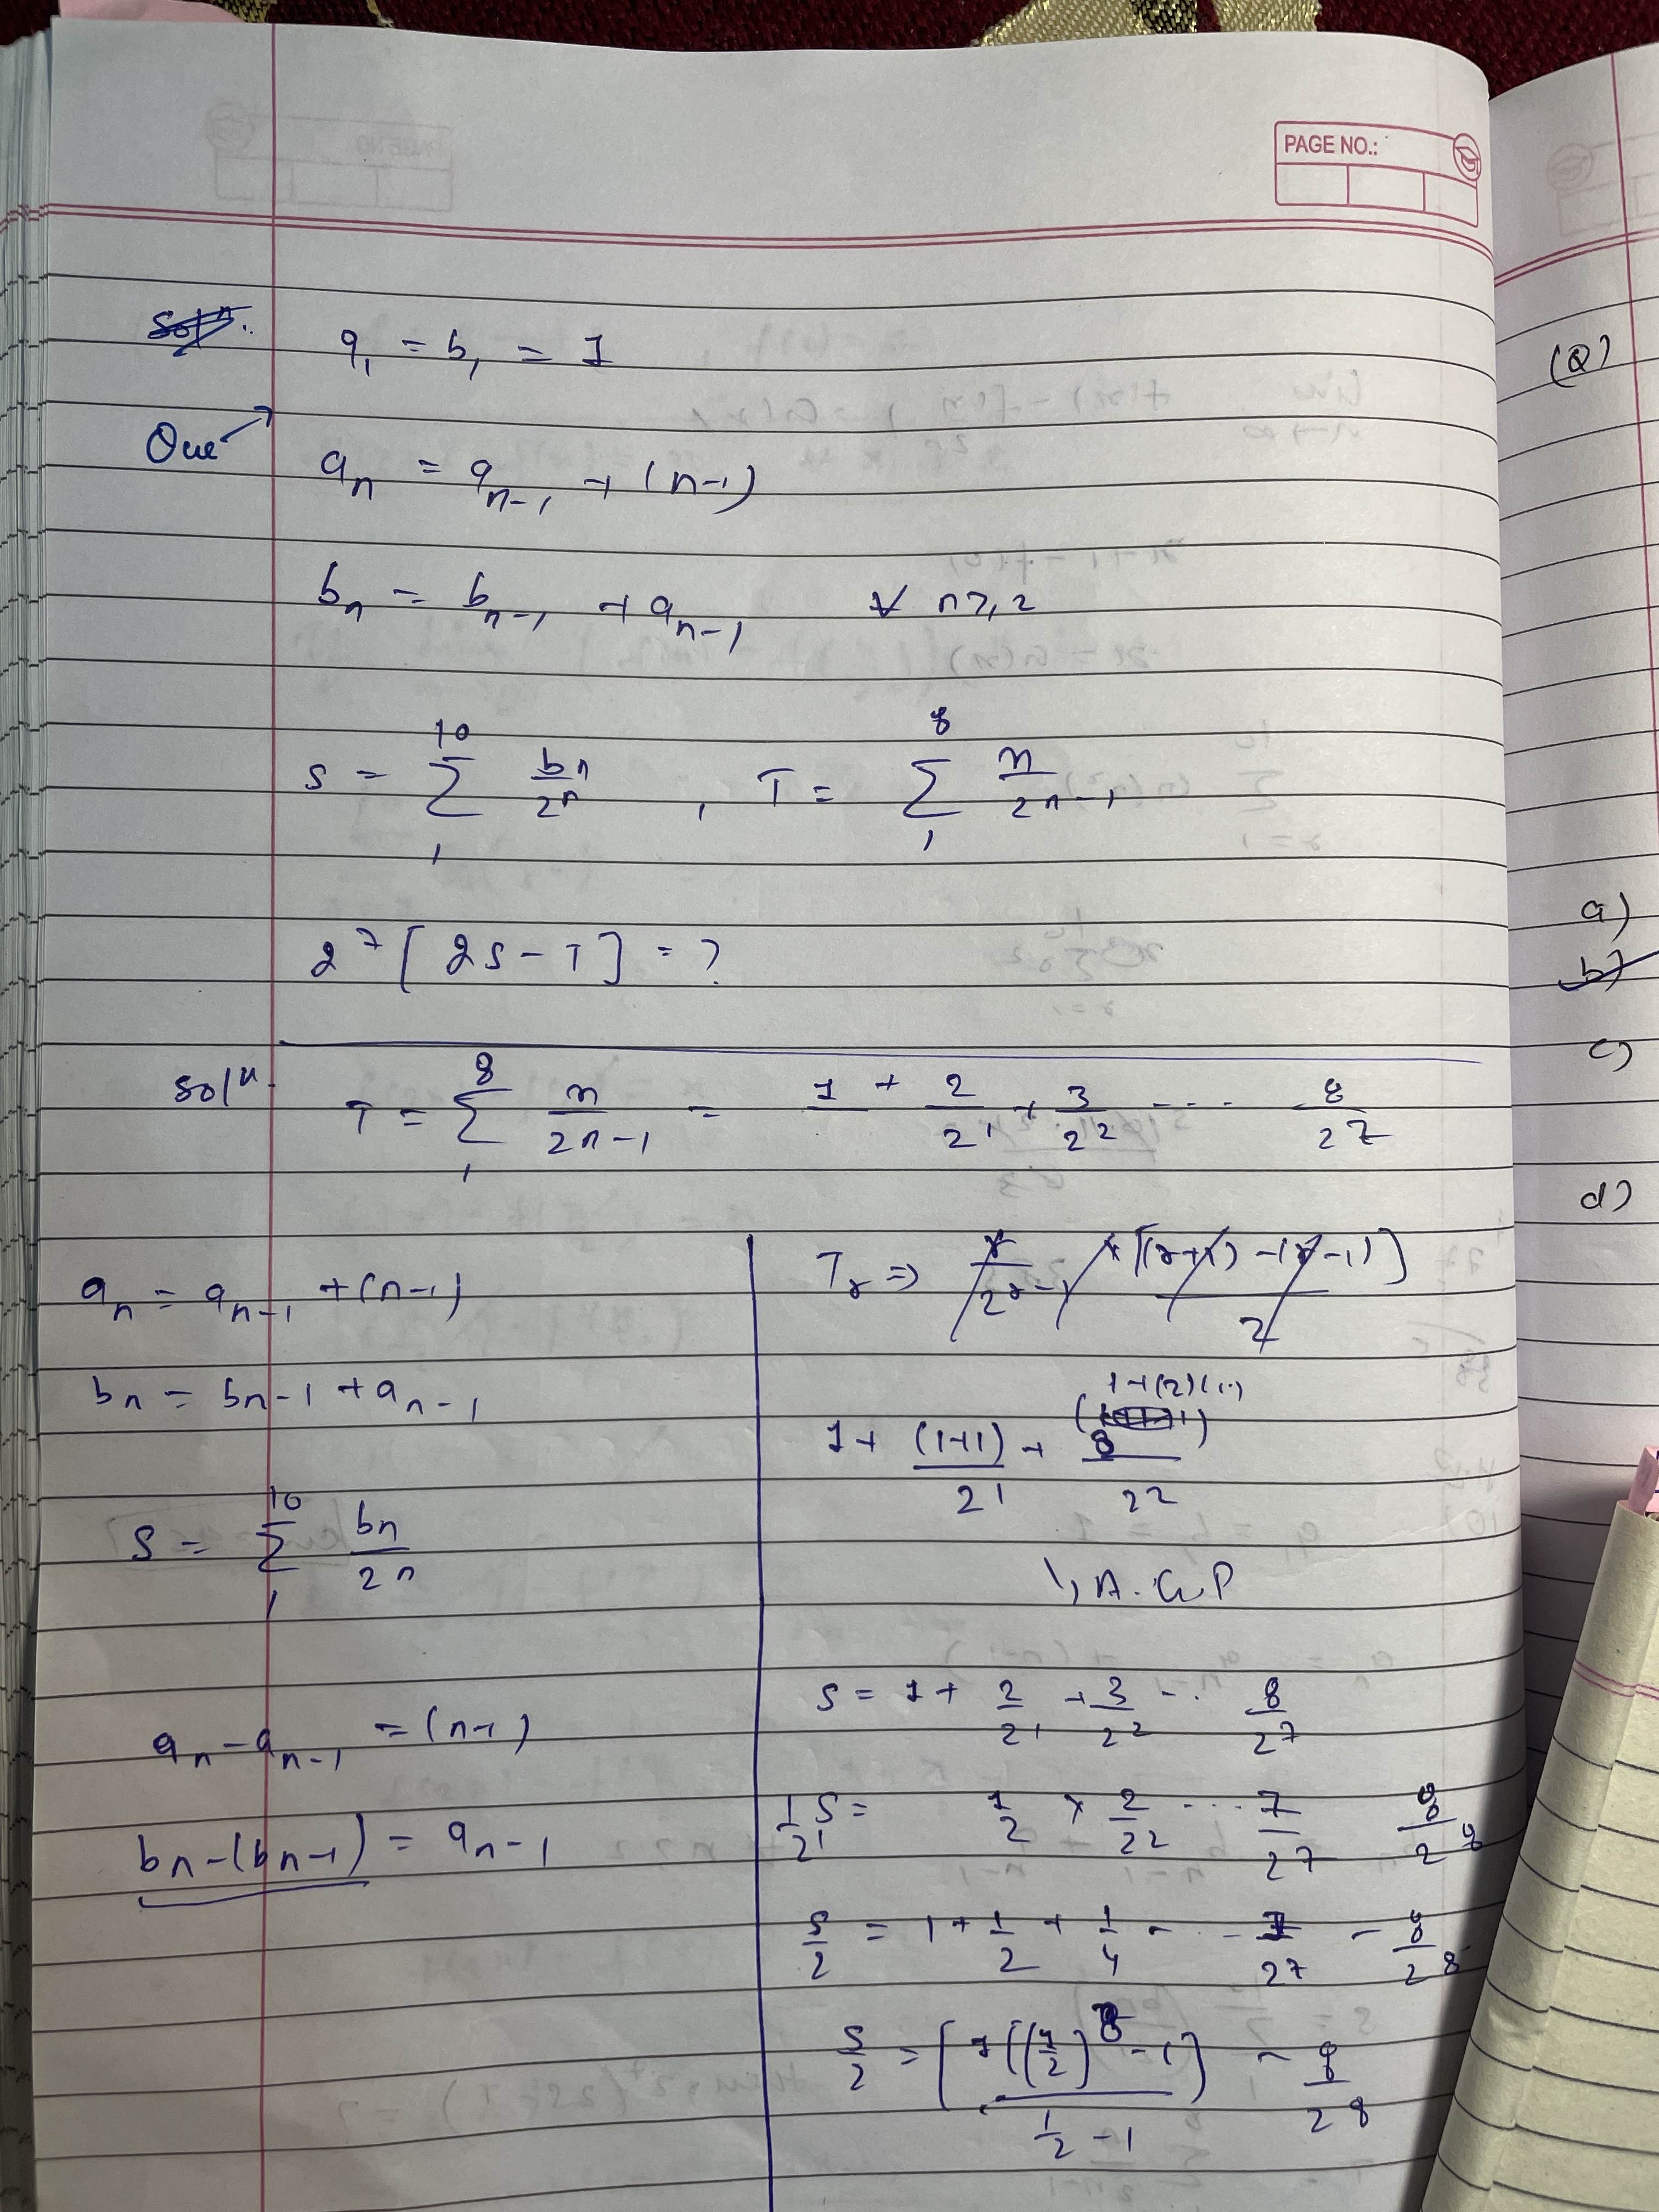 PAGE NO.:
a₁ = b₁ = 1
Que
aₙ = aₙ₋₁ + (n-1)
bₙ = bₙ₋₁ + aₙ₋₁ ∀ n ≥ 2
S = Σ₁¹⁰ bₙ/2ⁿ , T = Σ₁⁸ n/2ⁿ⁻¹
2⁷ [ 2S - T ] = ?
Solⁿ. T = Σ₁⁸ n/2ⁿ⁻¹ = 1 + 2/2¹ + 3/2² ---- 8/2⁷
aₙ = aₙ₋₁ + (n-1)
bₙ = bₙ₋₁ + aₙ₋₁
S = Σ₁¹⁰ bₙ/2ⁿ
aₙ - aₙ₋₁ = (n-1)
bₙ - (bₙ₋₁) = aₙ₋₁
Tᵣ ⇒
1 + (1+1)/2¹ +
↳ A.G.P
S = 1 + 2/2¹ + 3/2² -.. 8/2⁷
1/2¹ S = 1/2 + 2/2² ---- 7/2⁷ 8/2⁸
S/2 = 1 + 1/2 + 1/4 - .. - 1/2⁷ - 8/2⁸
S/2 = [ 1((1/2)⁸ - 1) / (1/2 - 1) ] - 8/2⁸
(Q)
a)
b)
c)
d)